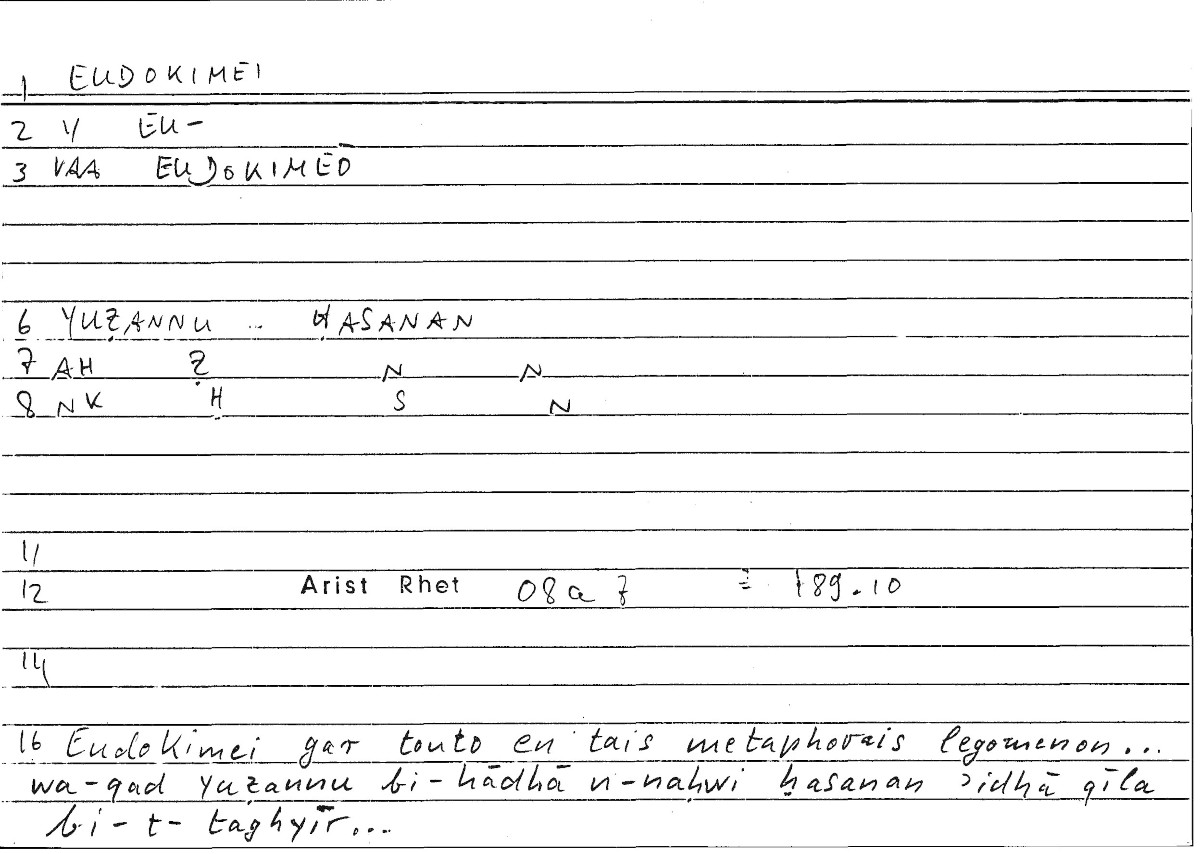 1 EUDOKIMEI
2 V EU-
3 VAA EUDOKIMEŌ
6 YUẒANNU ... ḤASANAN
7 AH Ẓ N N
8 NK Ḥ S N
11
12 Arist Rhet 08a7 = 189.10
14
16 Eudokimei gar touto en tais metaphorais legomenon...
wa-qad yuẓannu bi-hādhā n-naḥwi ḥasanan ʾidhā qīla
bi-t-taghyīr...